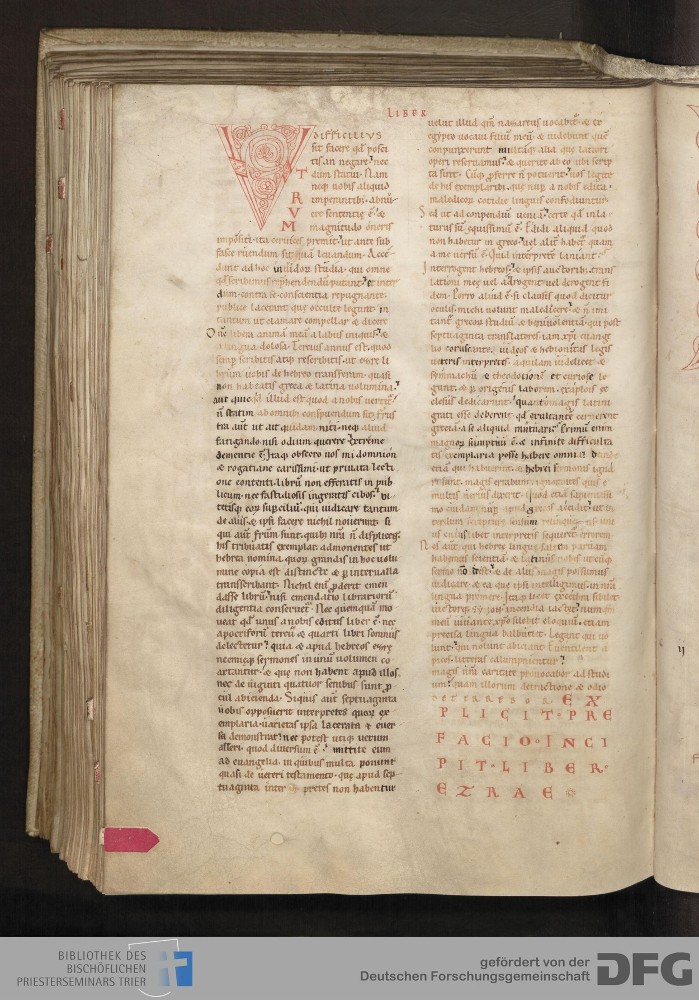 LIBER
V
T
R
V
M
difficilius
sit facere qd posci
tis an negare: nec
dum statui. Nam
neq; nobis aliquid
imperantib; abnu
ere sententie ē. &
magnitudo oneris
impositi. ita cervices premit. ut ante sub
fasce ruendum sit quā levandum. Acce
dunt ad hoc invidorū studia. qui omne
qd scribimus reprehendendū putant. et inter
dum contra se conscientia repugnante
publice lacerant. que occulte legunt. in
tantum ut clamare compellar & dicere
Dn̄e libera animā meā a labiis iniquis. &
a lingua dolosa. Tercius annus est. quod
semp scribitis atq; rescribitis. ut esdre li
brum vobis de hebreo transferam. quasi
non habeatis greca & latina volumina.
aut quicqd illud est quod a nobis vertit
n̄ statim ab omnib; conspuendum sit. Frus
tra aut ut ait quidam. niti. neq; aliud
fatigando nisi odium querere extreme
dementie ē. Itaq; obsecro vos mi domnion
& rogatiane carissimi. ut privata lecti
one contenti. librū non efferatis in pub
licum. nec fastidiosis ingeratis cibos. vi
tetisq; eorū supciliū. qui iudicare tantum
de aliis. & ipsi facere nichil noverunt. si
qui aut frūm sunt. quib; nr̄a n̄ displicent.
his tribuatis exemplar. admonentes ut
hebrea nomina. quorū grandis in hoc volu
mine copia est. distincte & p intervalla
transscribant. Nichil enī pderit emen
dasse librū. nisi emendatio librariorū
diligentia conservet. Nec quemquā mo
veat qd unus a nobis editus liber ē. nec
apocriforū tercii & quarti libri somniis
delectetur. quia & apud hebreos esdre
neemieq; sermones in unū volumen co
artantur. & que non habent apud illos.
nec de viginti quatuor senibus sunt. p
cul abicienda. Siquis aut septuaginta
vobis opposuerit interpretes quorū ex
emplaria varietas ipsa lacerata & ever
sa demonstrat. nec potest utiq; verum
asseri. quod diversum ē. mittite eum
ad evangelia. in quibus multa ponunt
quasi de veteri testamento. que apud sep
tuaginta inter pretes non habentur
velut illud qm̄ nazareus vocabit. & ex
egypto vocavi filiū meū. & videbunt quē
conpunxerunt. multaq; alia que latiori
operi reservamus. & querite ab eo ubi scrip
ta sint. Cūq; pferre n̄ potuerit. vos legite
de his exemplarib; que nup a nobis edita.
maledicorū cotidie linguis confodiuntur.
Sed ut ad conpendiū veniā. certe qd illa
turus sū equissimū ē. Edidi aliquid quod
non habetur in greco. vel alit habet quam
a me versū ē. Quid interpretē laniant.
Interrogent hebreos. & ipsis auctorib; trans
lationi mee vel adrogent. vel derogent fi
dem. Porro aliud ē si clausis quod dicitur
oculis. michi volunt maledicere. & n̄ imi
tant grecorū studiū & benivolentiā. qui post
septuaginta translatores. iam xpi evange
lio coruscante. iudeos & hebionitas legis
veteris interpretes. aquilam videlicet &
symmachū & theodotionē. et curiose le
gunt. & p origenis laborem. exaplois ec
clesiis dedicarunt. quantomagis latini
grati esse deberent. qd exultantē cernerent
greciā a se aliquid mutuari. Primū enim
magnorū sumptuū ē. & infinite difficulta
tis exemplaria posse habere omnia. deinde
etiā qui habuerint. & hebrei sermonis igna
ri sunt. magis errabunt. ignorantes quis e
multis verius dixerit. Quod etiā sapientissi
mo cuidam nup apud grecos accidit. ut in
terdum scripture sensum relinquens. uni
us cuiuslibet interpretis sequeret errorem.
Nos aut qui hebree lingue saltem parvam
habemus scientiā. & latinus nobis utcūq;
sermo non deest. & de aliis magis possumus
iudicare. & ea que ipsi intelligimus. in nr̄a
lingua promere. Itaq; licet excetra sibilet
victorq;
meū iuvante xp̄o silebit eloquiū. etiam
precisa lingua balbutiet. Legant qui vo
lunt. qui nolunt abiciant. Eventilent a
pices. litteras calumpnientur.
magis vr̄a caritate provocabor ad studi
um. quam illorum detractione & odio
EX
PLICIT. PRE
FACIO. INCI
PIT. LIBER.
EZRAE
BIBLIOTHEK DES
BISCHÖFLICHEN
PRIESTERSEMINARS TRIER
gefördert von der
Deutschen Forschungsgemeinschaft
DFG